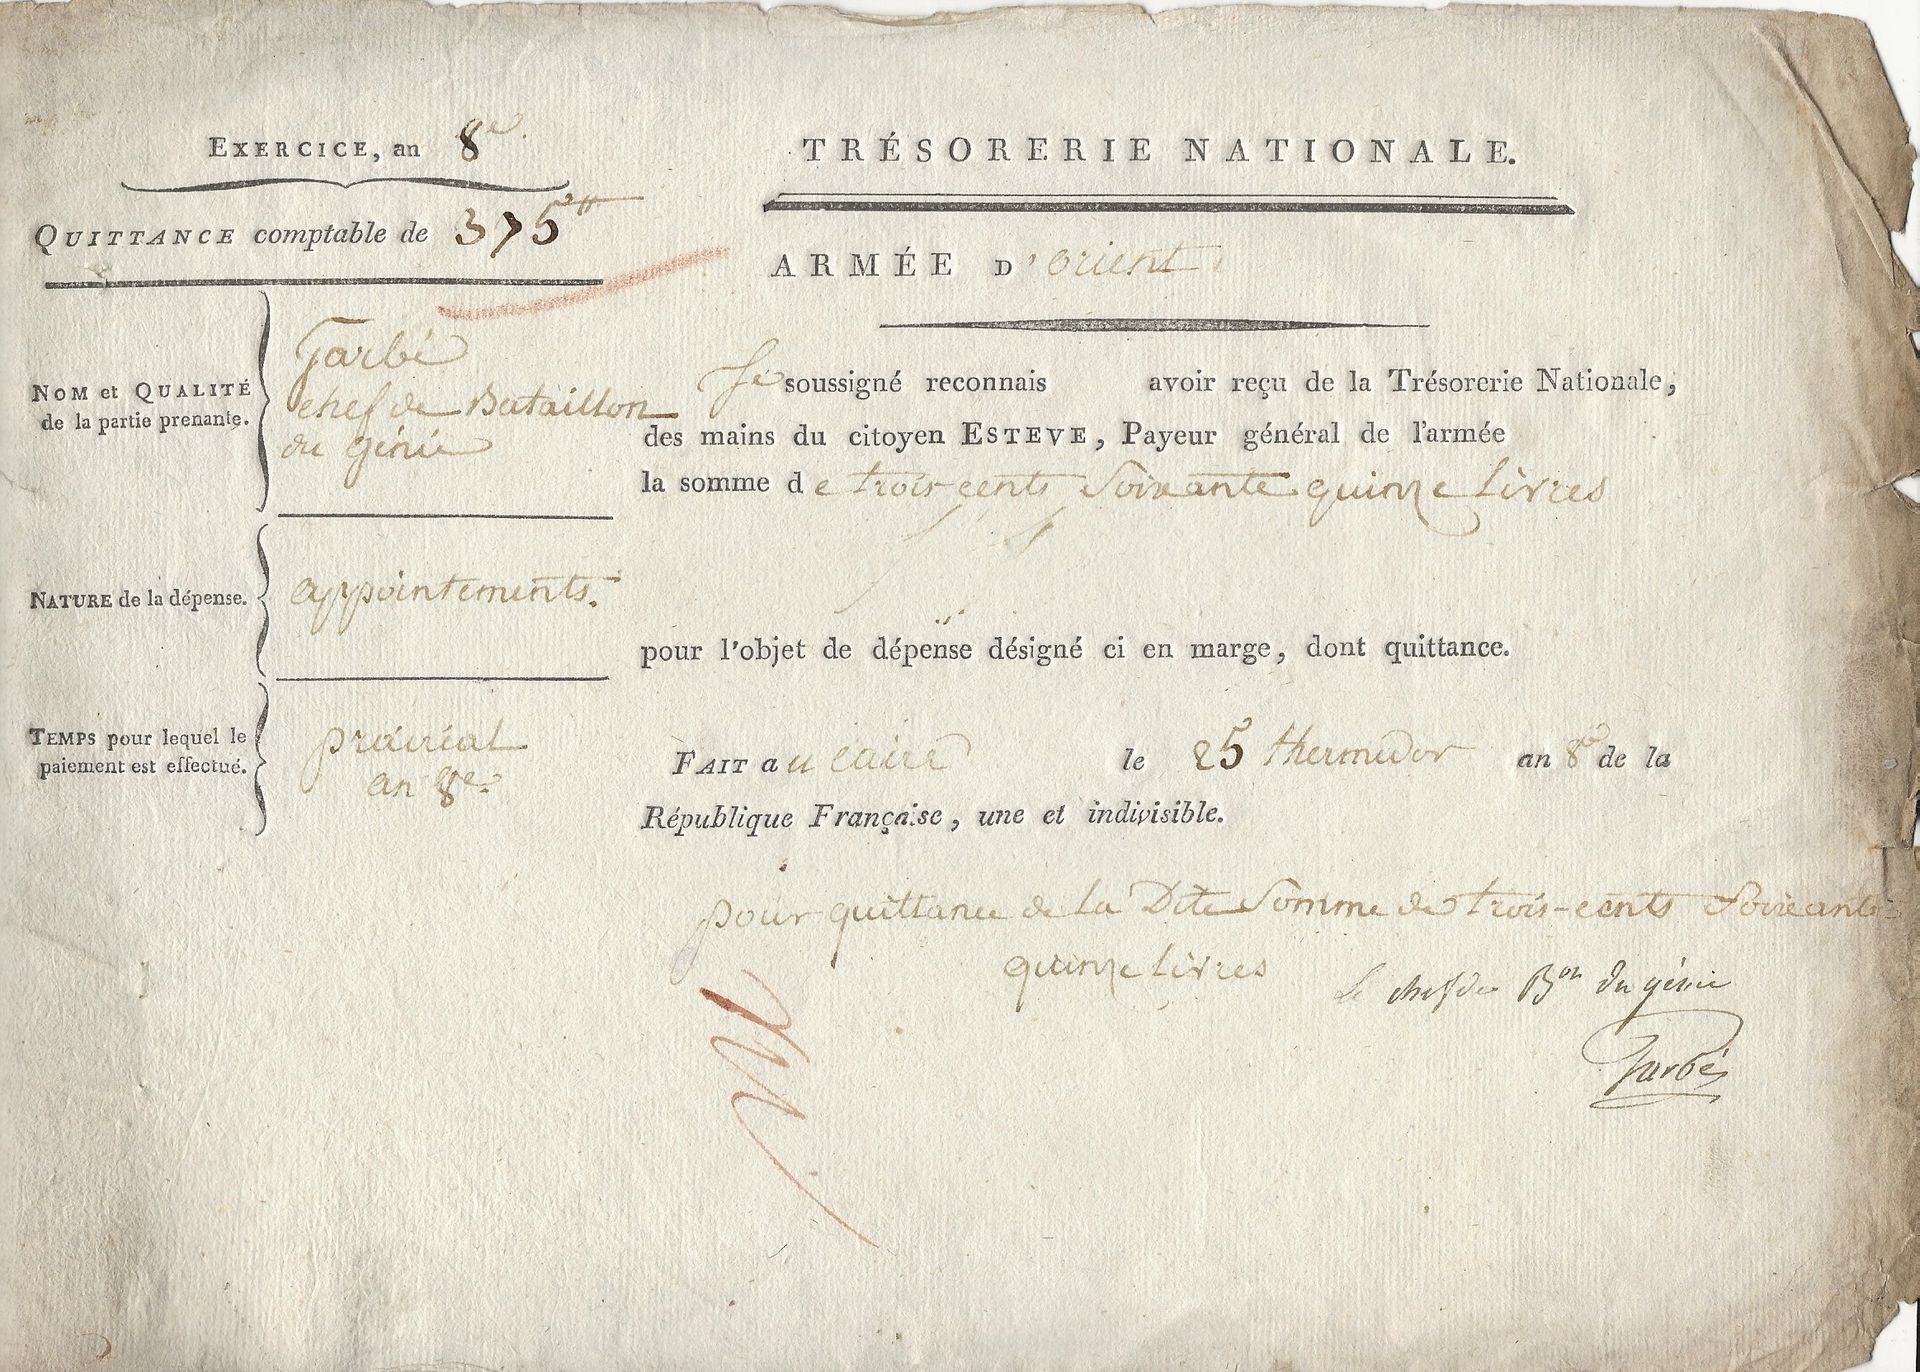 EXERCICE, an 8e.
QUITTANCE comptable de 375tt
NOM et QUALITÉ
de la partie prenante.
Garbé
chef de Bataillon
du génie
NATURE de la dépense.
appointements.
TEMPS pour lequel le
paiement est effectué.
prairial
an 8e.
TRÉSORERIE NATIONALE.
ARMÉE D'orient
Je soussigné reconnais avoir reçu de la Trésorerie Nationale,
des mains du citoyen ESTEVE, Payeur général de l'armée
la somme de trois-cents Soixante quinze Livres
pour l'objet de dépense désigné ci en marge, dont quittance.
FAIT au caire le 25 thermidor an 8e de la
République Française, une et indivisible.
pour quittance de la Dite Somme de trois-cents Soixante
quinze Livres
Le chef de Bon du génie
Garbé